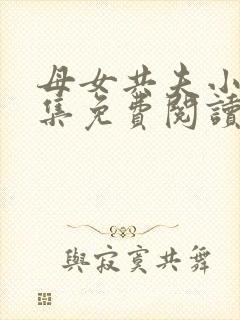 母女共夫小
集免費閱讀
與寂寞共舞